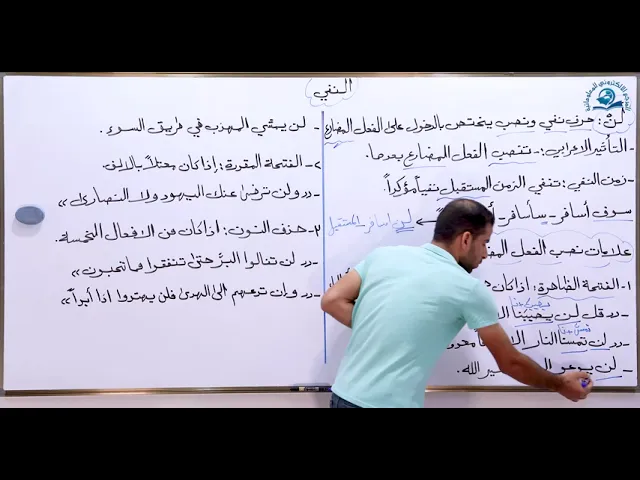 النفي
لن: حرف نفي ونصب يختص بالدخول على الفعل المضارع
- التأثير الاعرابي: - تنصب الفعل المضارع بعدها.
- زمن النفي: تنفي الزمن المستقبل نفياً مؤكداً.
سوف أسافر - سأسافر
لن اسافر - المستقبل
علامات نصب الفعل
١- الفتحة الظاهرة: اذا كان
- قل لن يصيبنا
- لن تمسنا النار
- لن يدعو
- لن يمشي المهذب في طريق السوء.
٢- الفتحة المقدرة: اذا كان معتلاً بالالف
- ولن ترضى عنك اليهود ولا النصارى
٣- حذف النون: اذا كان من الافعال الخمسة.
- لن تنالوا البر حتى تنفقوا مما تحبون
- وان تدعهم الى الهدى فلن يهتدوا اذا أبداً